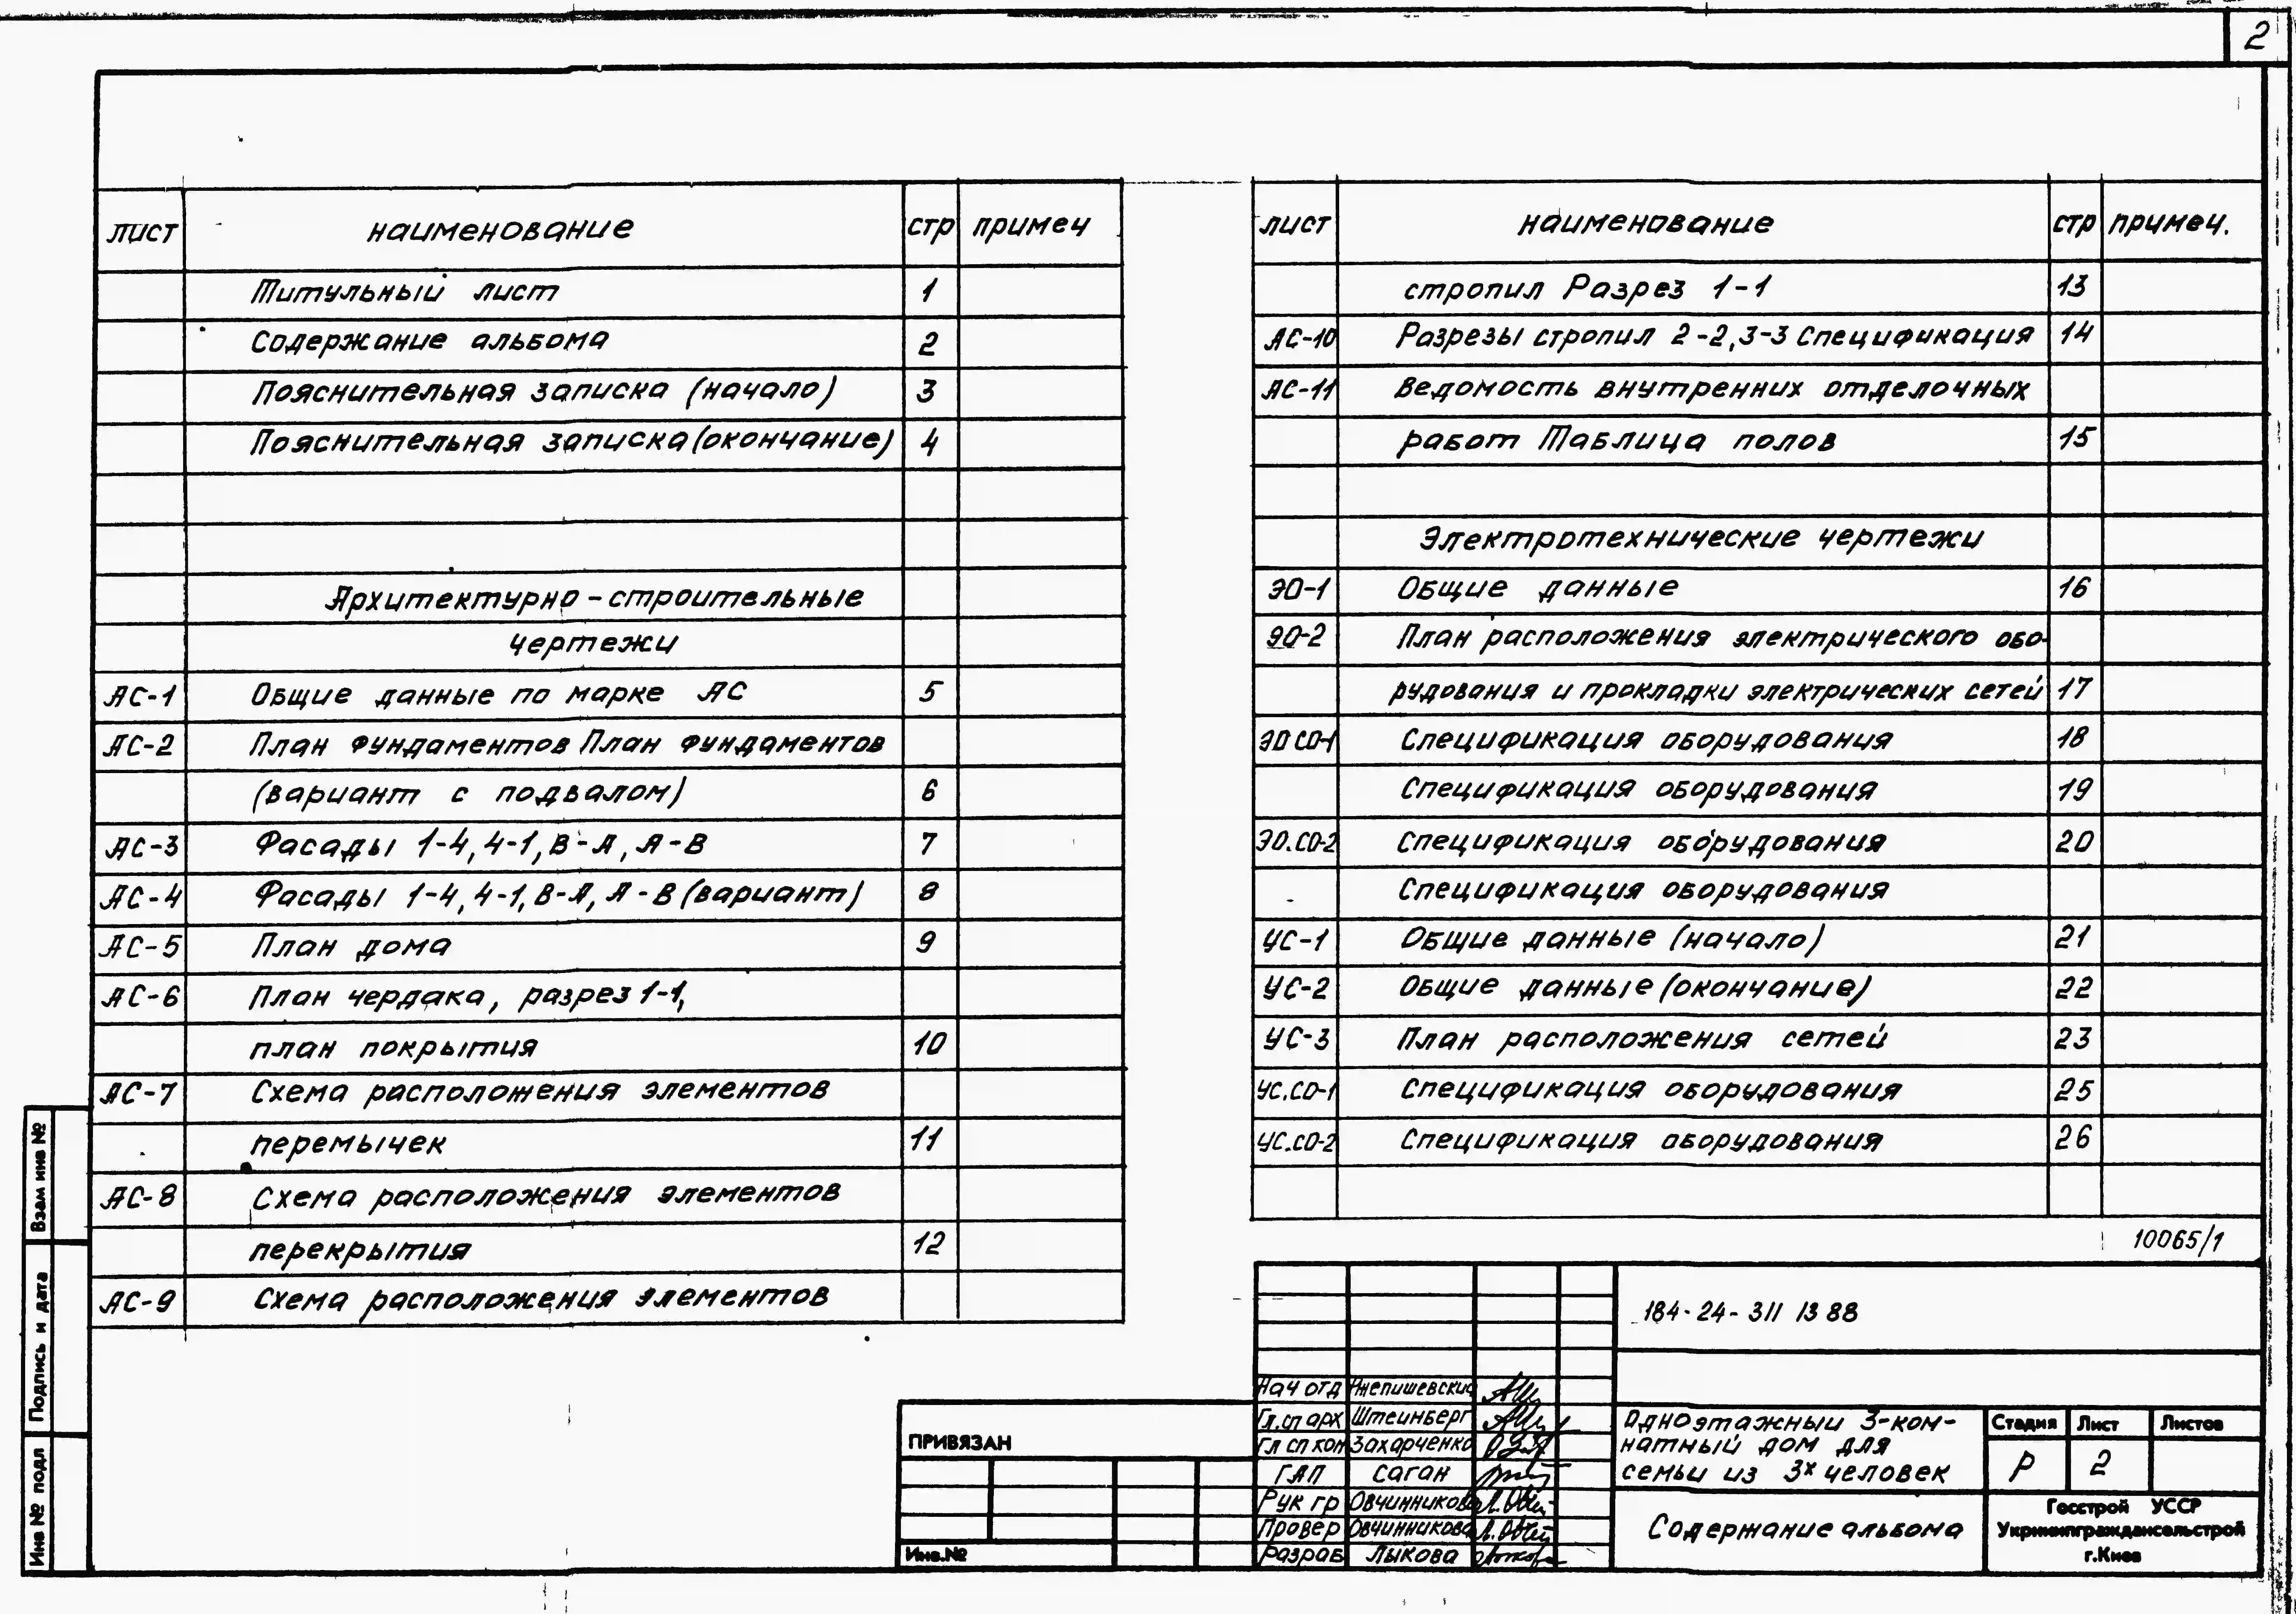 2
лист наименование стр примеч
Титульный лист 1
Содержание альбома 2
Пояснительная записка (начало) 3
Пояснительная записка (окончание) 4
Архитектурно-строительные
чертежи
АС-1 Общие данные по марке АС 5
АС-2 План фундаментов План фундаментов
(вариант с подвалом) 6
АС-3 Фасады 1-4, 4-1, В-А, А-В 7
АС-4 Фасады 1-4, 4-1, В-А, А-В (вариант) 8
АС-5 План дома 9
АС-6 План чердака, разрез 1-1,
план покрытия 10
АС-7 Схема расположения элементов
перемычек 11
АС-8 Схема расположения элементов
перекрытия 12
АС-9 Схема расположения элементов
лист наименование стр примеч.
стропил Разрез 1-1 13
АС-10 Разрезы стропил 2-2, 3-3 Спецификация 14
АС-11 Ведомость внутренних отделочных
работ Таблица полов 15
Электротехнические чертежи
ЭО-1 Общие данные 16
ЭО-2 План расположения электрического обо-
рудования и прокладки электрических сетей 17
ЭО СО-1 Спецификация оборудования 18
Спецификация оборудования 19
ЭО.СО-2 Спецификация оборудования 20
Спецификация оборудования
УС-1 Общие данные (начало) 21
УС-2 Общие данные (окончание) 22
УС-3 План расположения сетей 23
УС.СО-1 Спецификация оборудования 25
УС.СО-2 Спецификация оборудования 26
10065/1
184-24-311 13 88
Нач отд
Гл.сп арх Штейнберг
Гл сп кон Захарченко
ГАП Саган
Рук гр Овчинникова
Провер Овчинникова
Разраб Лыкова
Одноэтажный 3-ком-
натный дом для
семьи из 3х человек
Стадия Лист Листов
Р 2
Содержание альбома
Госстрой УССР
Укрниипграждансельстрой
г.Киев
ПРИВЯЗАН
Инв.№
Взам инв №
Подпись и дата
Инв № подл